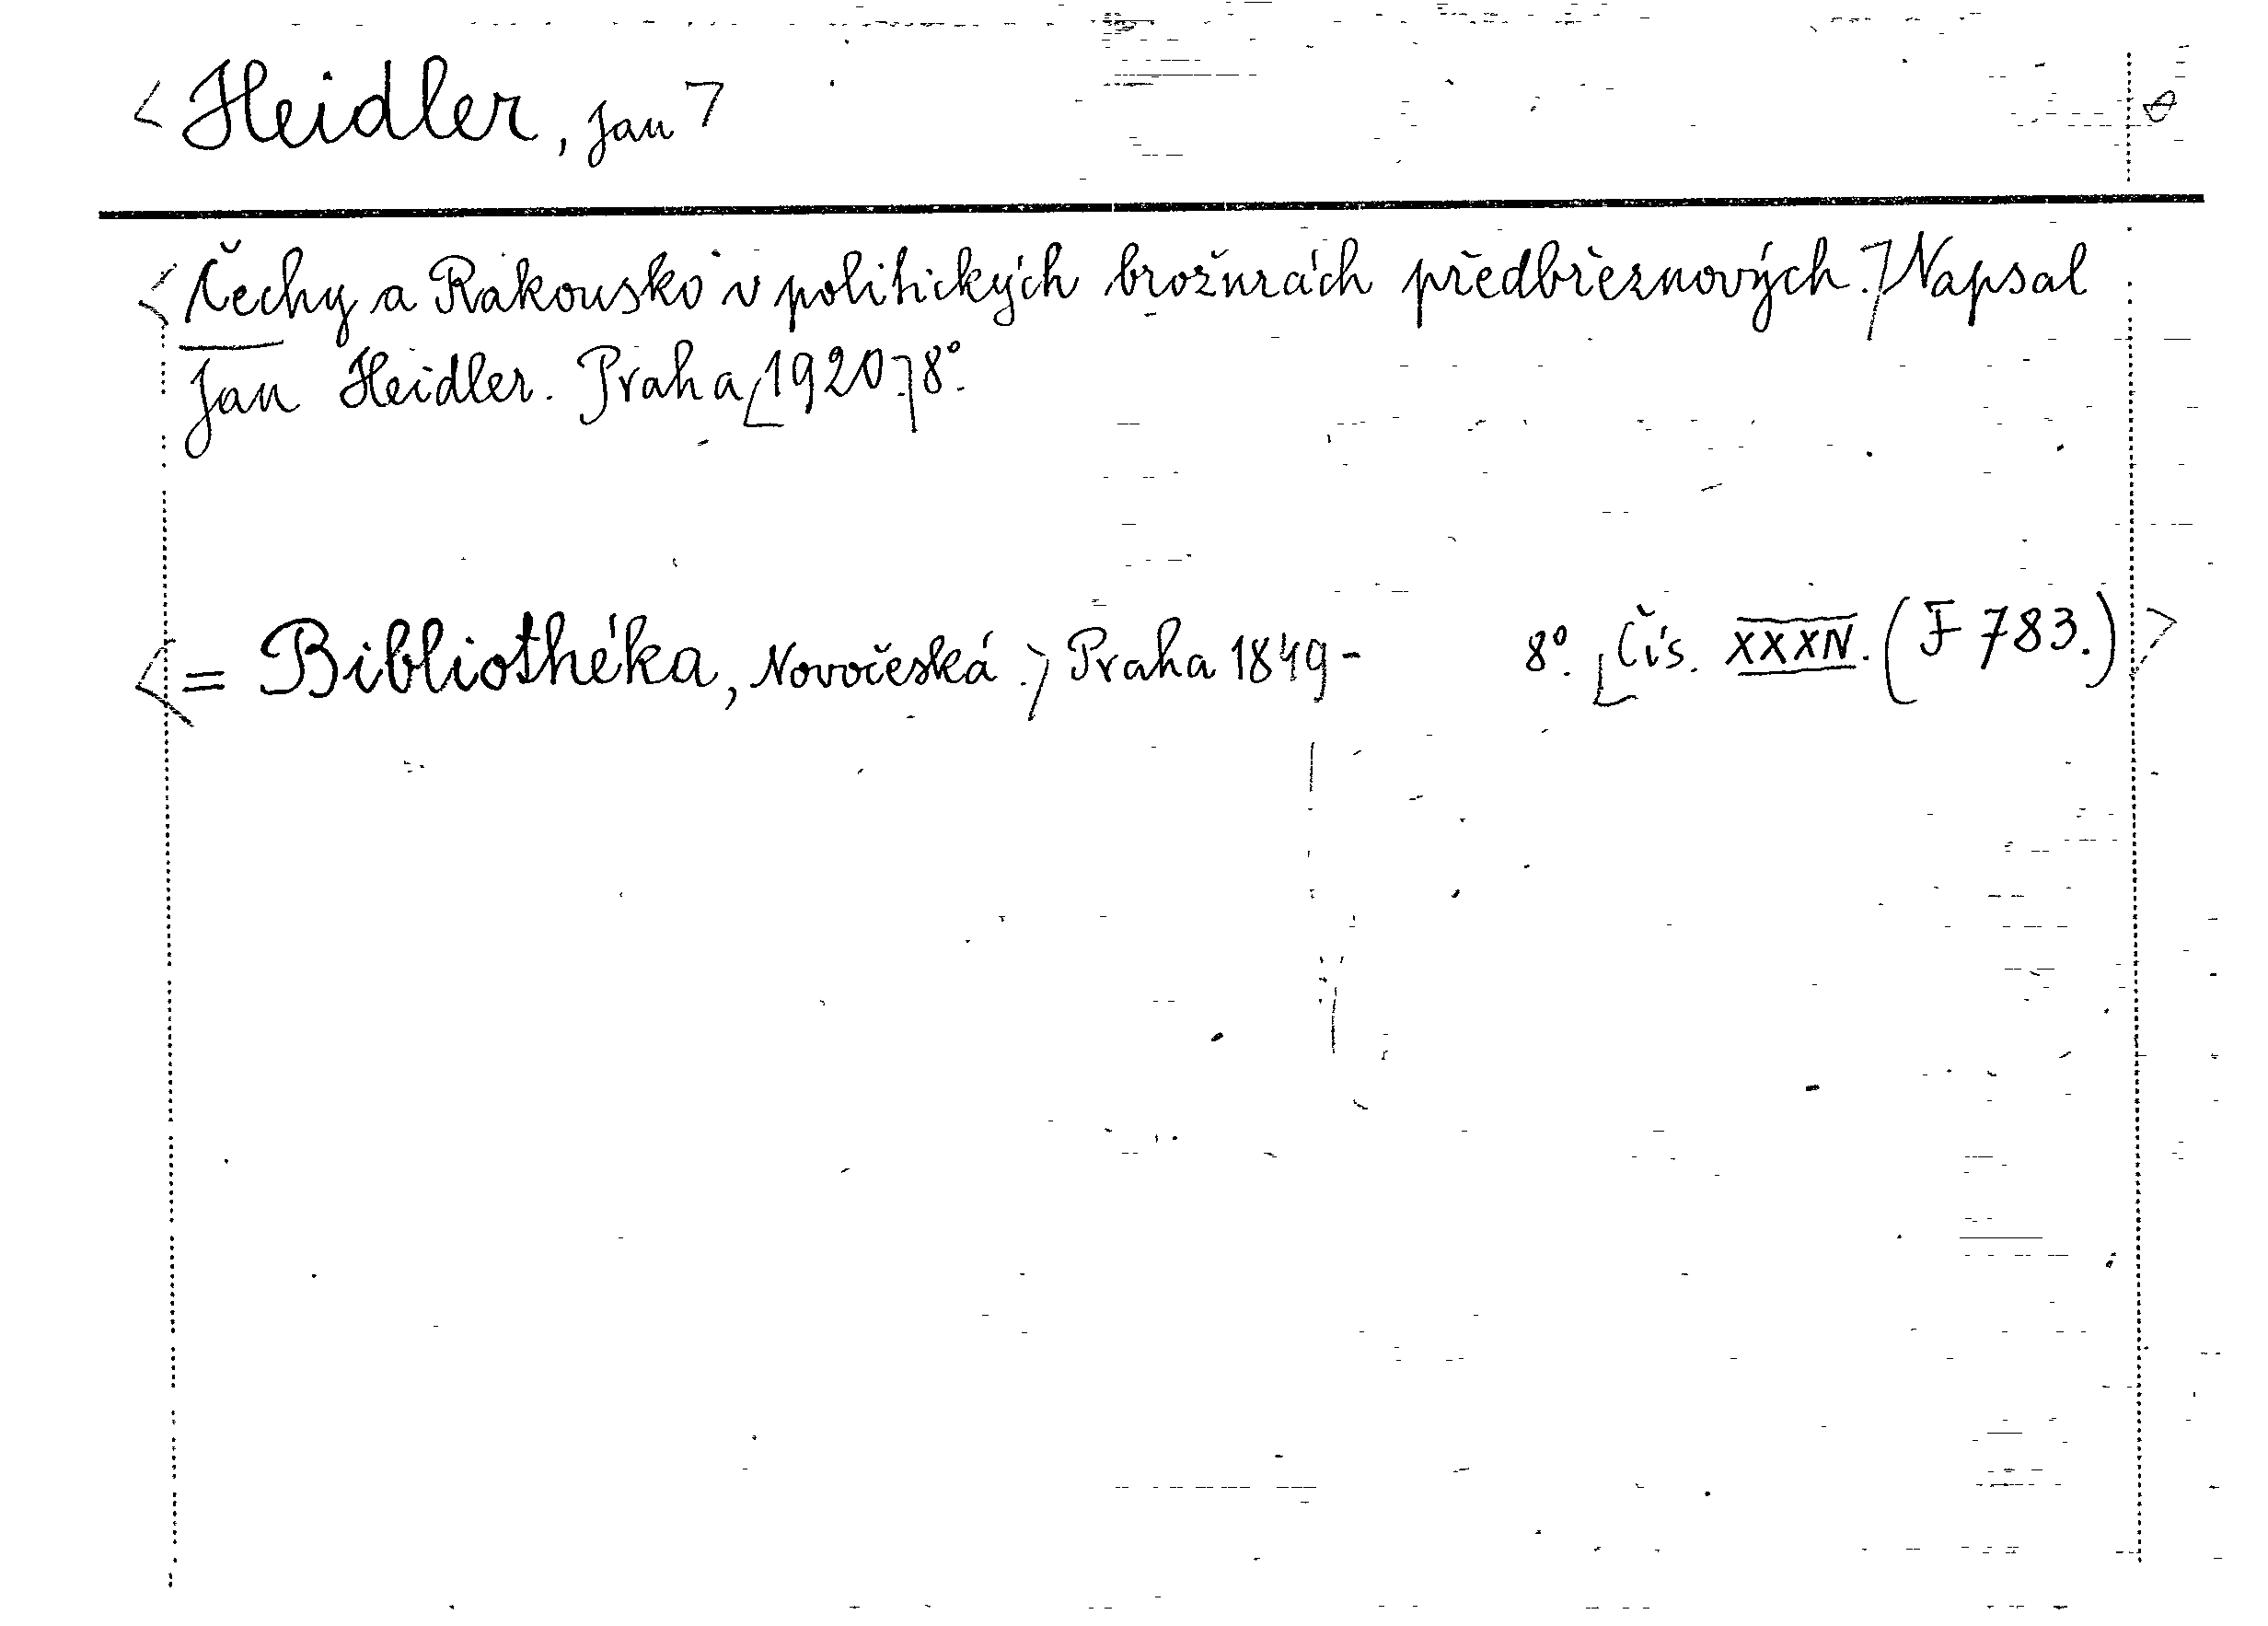 <Heidler, Jan>
<Čechy a Rakousko v politických brožurách předbřeznových.> Napsal
Jan Heidler. Praha <1920.> 8°.
<= Bibliothéka, Novočeská.> Praha 1849- 8°. <Čís. XXXIV. (F 783.)>